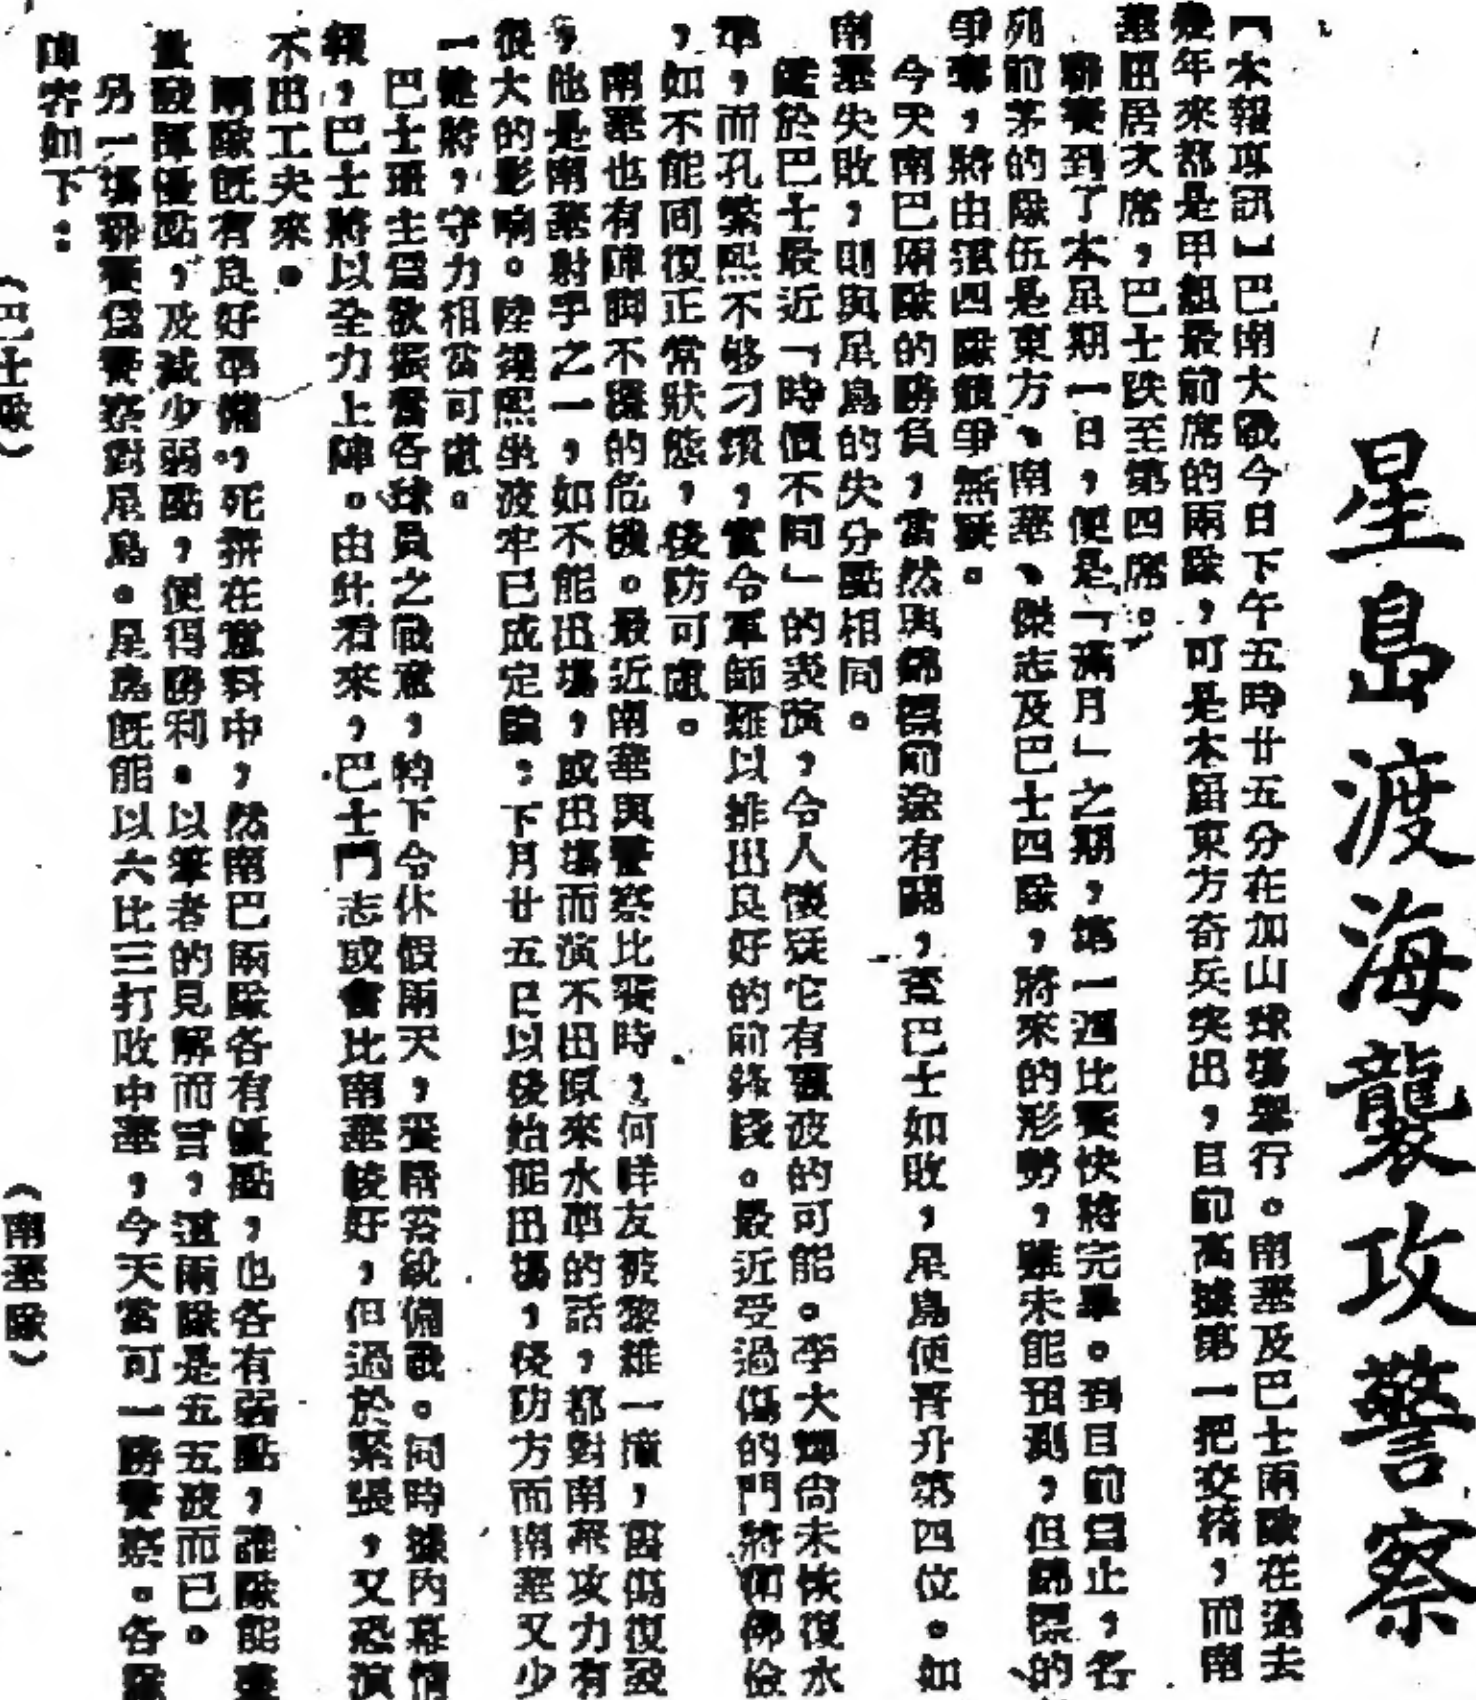 星島渡海襲攻警察
【本報專訊】巴南大戰今日下午五時廿五分在加山球場舉行。南華及巴士兩隊在過去
幾年來都是甲組最前席的兩隊，可是本屆東方奇兵突出，目前高據第一把交椅，而南
華屈居次席，巴士跌至第四席。
聯賽到了本星期一日，便是「滿月」之期，第一週比賽快將完畢。到目前為止，名
列前茅的隊伍是東方、南華、傑志及巴士四隊，將來的形勢，雖未能預測，但錦標的
爭奪，將由這四隊競爭無疑。
今天南巴兩隊的勝負，當然與錦標前途有關，蓋巴士如敗，星島便晋升第四位。如
南華失敗，則與星島的失分點相同。
鑑於巴士最近「時價不同」的表演，令人懷疑它有再波的可能。李大輝尚未恢復水
準，而孔繁熙不够刁鑽，實令軍師難以排出良好的前鋒綫。最近受過傷的門將衛佛儉
，如不能囘復正常狀態，後防可慮。
南華也有陣脚不穩的危機。最近南華與警察比賽時，何咩友被黎雄一撞，舊傷復發
，他是南華射手之一，如不能出場，或出場而演不出原來水準的話，都對南華攻力有
很大的影响。陸錦熙坐波牢已成定讞；下月廿五日以後始能出場，後防方面南華又少
一健將，守力相當可慮。
巴士班主為欲振奮各球員之戰意，特下令休假兩天，養精蓄銳備戰。同時據內幕情
報，巴士將以全力上陣。由此看來，巴士鬥志或會比南華較好，但過於緊張，又恐演
不出工夫來。
兩隊旣有良好準備，死拼在意料中，然南巴兩隊各有優點，也各有弱點，誰隊能盡
量發揮優點，及減少弱點，便得勝利。以筆者的見解而言，這兩隊是五五波而已。
另一場聯賽為警察對星島。星島旣能以六比三打敗中華，今天當可一勝警察。各隊
陣容如下：
（巴士隊）
（南華隊）